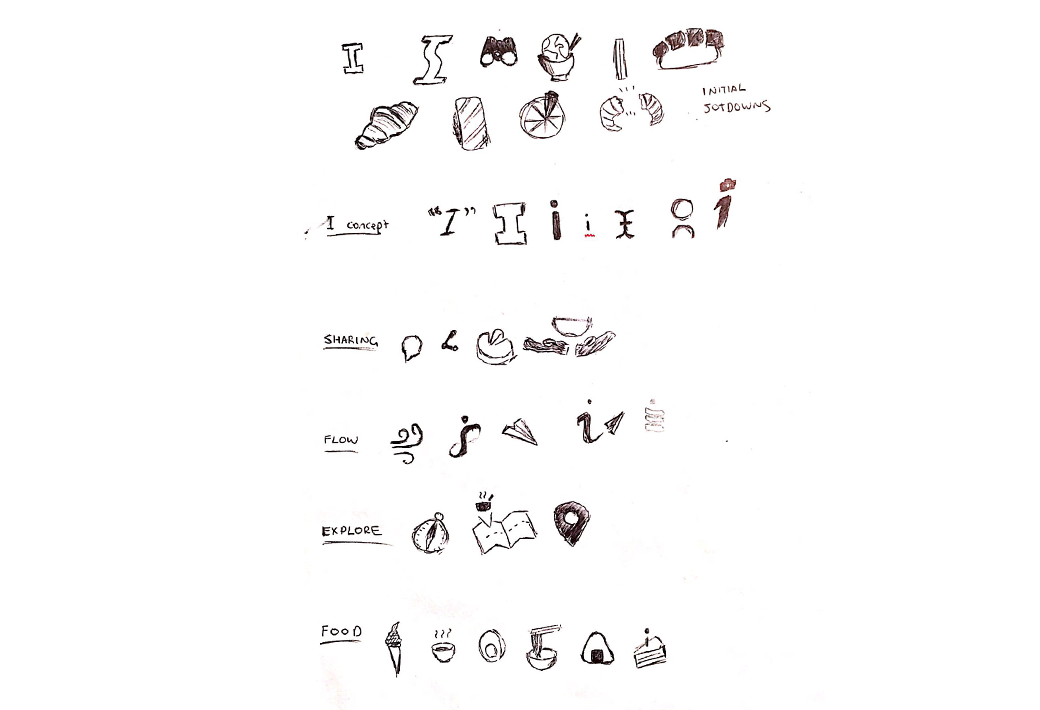 I I
INITIAL
JOTDOWNS
I concept "I" I i i I i
SHARING
FLOW i i i
EXPLORE
FOOD